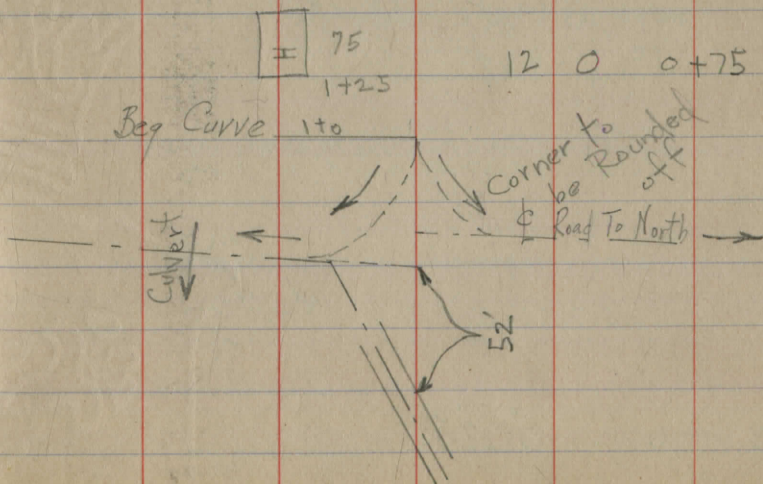 H 75
1+25
12 0 0+75
Beg Curve 1+0
Corner to
be Rounded
off
℄ Road To North
Culvert
52'